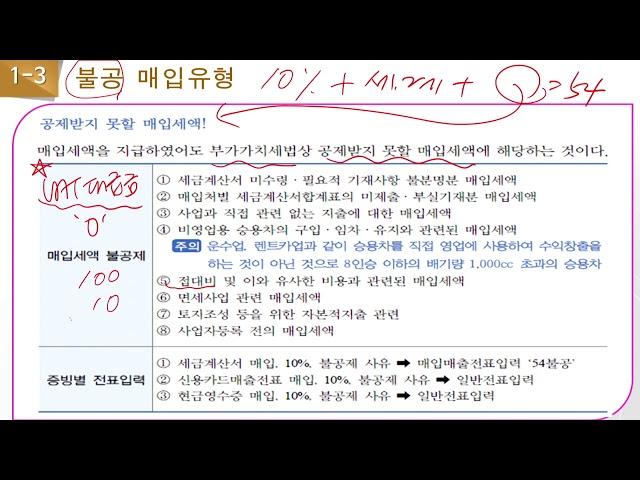 1-3 불공 매입유형 10% + 세.계 +
공제받지 못할 매입세액!
매입세액을 지급하였어도 부가가치세법상 공제받지 못할 매입세액에 해당하는 것이다.
① 세금계산서 미수령·필요적 기재사항 불분명분 매입세액
② 매입처별 세금계산서합계표의 미제출·부실기재분 매입세액
③ 사업과 직접 관련 없는 지출에 대한 매입세액
④ 비영업용 승용차의 구입·임차·유지와 관련된 매입세액
주의 운수업, 렌트카업과 같이 승용차를 직접 영업에 사용하여 수익창출을
하는 것이 아닌 것으로 8인승 이하의 배기량 1,000cc 초과의 승용차
"0"
매입세액 불공제
100
10
⑤ 접대비 및 이와 유사한 비용과 관련된 매입세액
⑥ 면세사업 관련 매입세액
⑦ 토지조성 등을 위한 자본적지출 관련
⑧ 사업자등록 전의 매입세액
증빙별 전표입력
① 세금계산서 매입, 10%, 불공제 사유 ➡ 매입매출전표입력 '54불공'
② 신용카드매출전표 매입, 10%, 불공제 사유 ➡ 일반전표입력
③ 현금영수증 매입, 10%, 불공제 사유 ➡ 일반전표입력